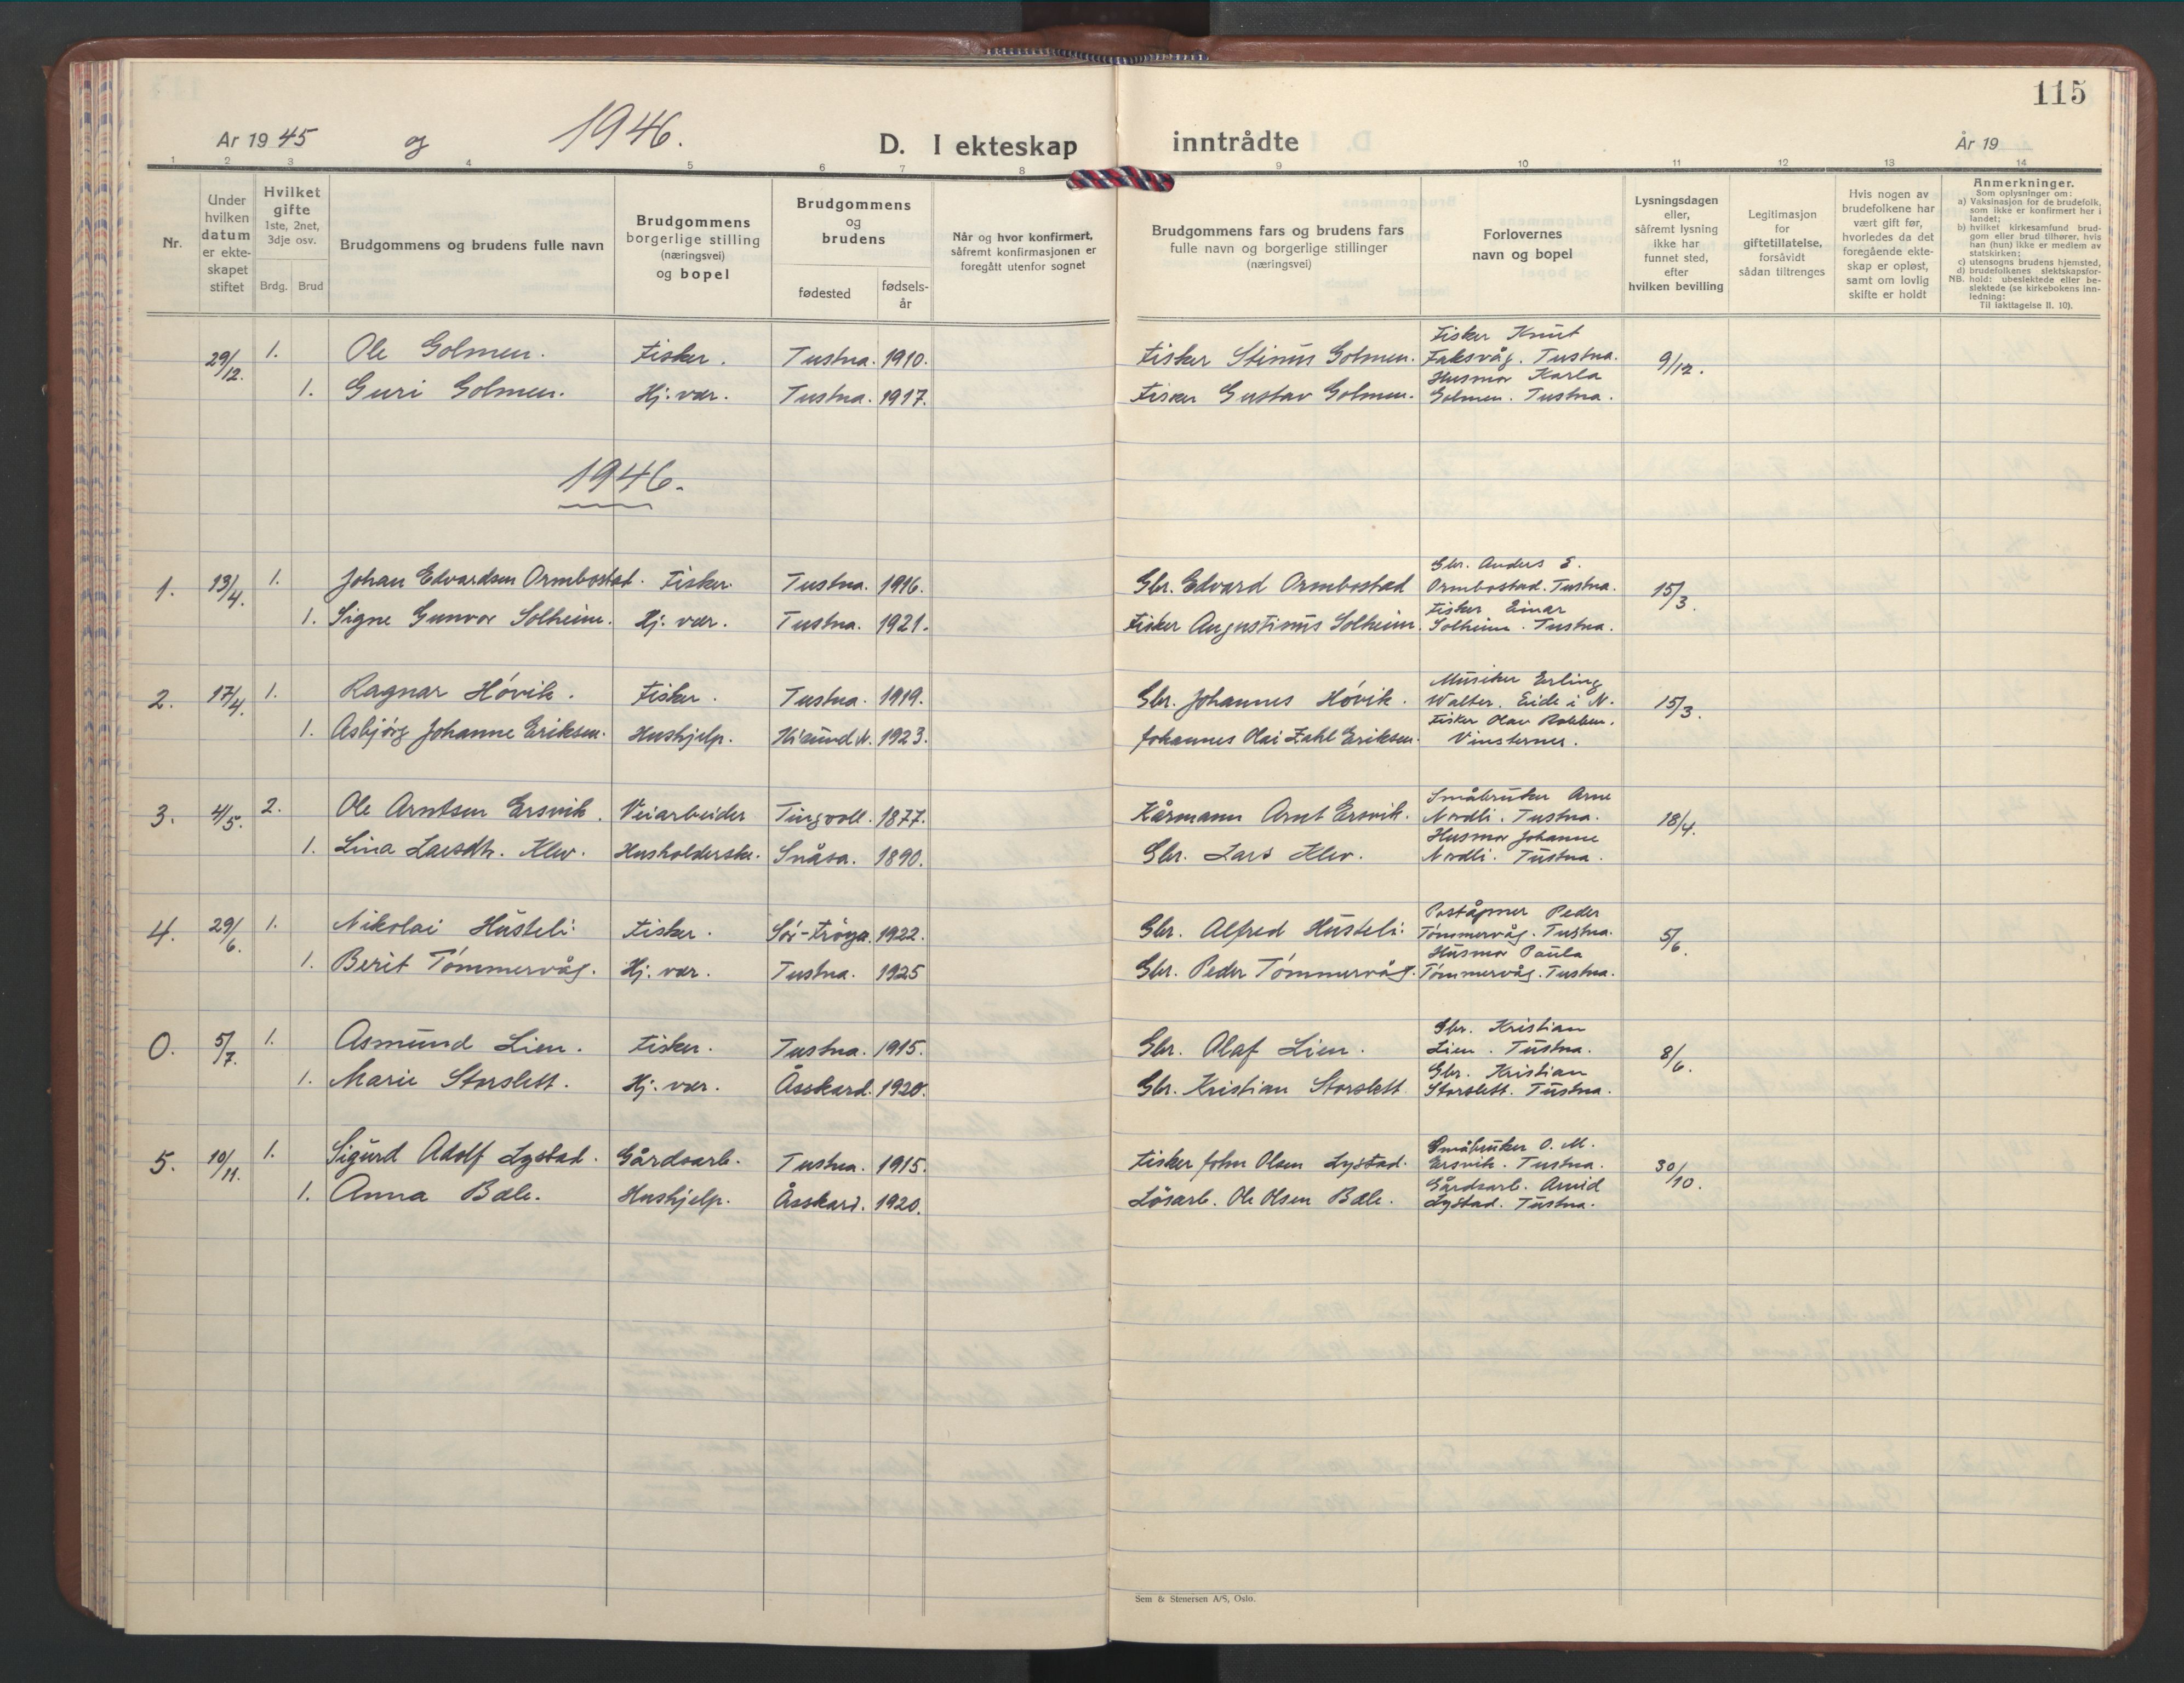 115
Ar 19 45 og 1946. D. I ekteskap inntrådte År 19
1 2 3 4 5 6 7 8 9 10 11 12 13 14
Nr.
Under hvilken datum er ekte-skapet stiftet
Hvilket gifte 1ste, 2net, 3dje osv.
Brdg. Brud
Brudgommens og brudens fulle navn
Brudgommens borgerlige stilling (næringsvei) og bopel
Brudgommens og brudens
fødested
fødsels-år
Når og hvor konfirmert, såfremt konfirmasjonen er foregått utenfor sognet
Brudgommens fars og brudens fars fulle navn og borgerlige stillinger (næringsvei)
Forlovernes navn og bopel
Lysningsdagen eller, såfremt lysning ikke har funnet sted, efter hvilken bevilling
Legitimasjon for giftetillatelse, forsåvidt sådan tiltrenges
Hvis nogen av brudefolkene har vært gift før, hvorledes da det foregående ekte-skap er opløst, samt om lovlig skifte er holdt
Anmerkninger.
Som oplysninger om:
a) Vaksinasjon for de brudefolk, som ikke er konfirmert her i landet;
b) hvilket kirkesamfund brud-gom eller brud tilhører, hvis han (hun) ikke er medlem av statskirken;
c) utensogns brudens hjemsted,
d) brudefolkenes slektskapsfor-
NB. hold: ubeslektede eller be-slektede (se kirkebokens inn-ledning:
Til iakttagelse II. 10).
29/12. 1. Ole Golmen. Fisker. Tustna. 1910. Fisker Stinus Golmen. Fisker Knut Faksvåg. Tustna. 9/12.
1. Guri Golmen. Hj. vær. Tustna. 1917. Fisker Gustav Golmen. Husmor Karla Golmen. Tustna.
1946.
1. 13/4. 1. Johan Edvardsen Ormbostad. Fisker. Tustna. 1916. Gbr. Edvard Ormbostad Gbr. Anders E. Ormbostad. Tustna. 15/3.
1. Signe Gunvor Solheim. Hj. vær. Tustna. 1921. Fisker Augustinus Solheim. Fisker Einar Solheim. Tustna.
2. 17/4. 1. Ragnar Hóvik. Fisker. Tustna. 1919. Gbr. Johannes Hóvik. Musiker Erling Walter. Eide i N. 15/3.
1. Asbjørg Johanne Eriksen. Hushjelp. Kr.sund N. 1923. Johannes Olai Zahl Eriksen. Fisker Olav Rokken. Vinsternes.
3. 4/5. 2. Ole Arntsen Ersvik. Veiarbeider Tingvoll. 1877. Kårmann Arnt Ersvik. Småbruker Arne Nordli. Tustna. 18/4.
1. Lina Larsdtr. Klev. Husholderske. Snåsa. 1890. Gbr. Lars Klev. Husmor Johanne Nordli. Tustna.
4. 29/6. 1. Nikolai Husteli. Fisker. Sór-Fróya. 1922. Gbr. Alfred Husteli. Poståpner Peder Tómmervåg. Tustna. 5/6.
1. Berit Tómmervåg. Hj. vær. Tustna. 1925 Gbr. Peder Tómmervåg. Husmor Paula Tómmervåg. Tustna.
0. 5/7. 1. Asmund Lien. Fisker. Tustna. 1915. Gbr. Olaf Lien. Gbr. Kristian Lien. Tustna. 8/6.
1. Marie Storslett. Hj. vær. Åsskard. 1920. Gbr. Kristian Storslett. Gbr. Kristian Storslett. Tustna.
5. 10/11. 1. Sigurd Adolf Lystad. Gårdsarb. Tustna. 1915. Fisker John Olsen Lystad. Småbruker O. M. Ersvik. Tustna. 30/10.
1. Anna Bæle. Hushjelp. Åsskard. 1920. Lósarb. Ole Olsen Bæle. Gårdsarb. Arvid Lystad. Tustna.
Sem & Stenersen A/S, Oslo.